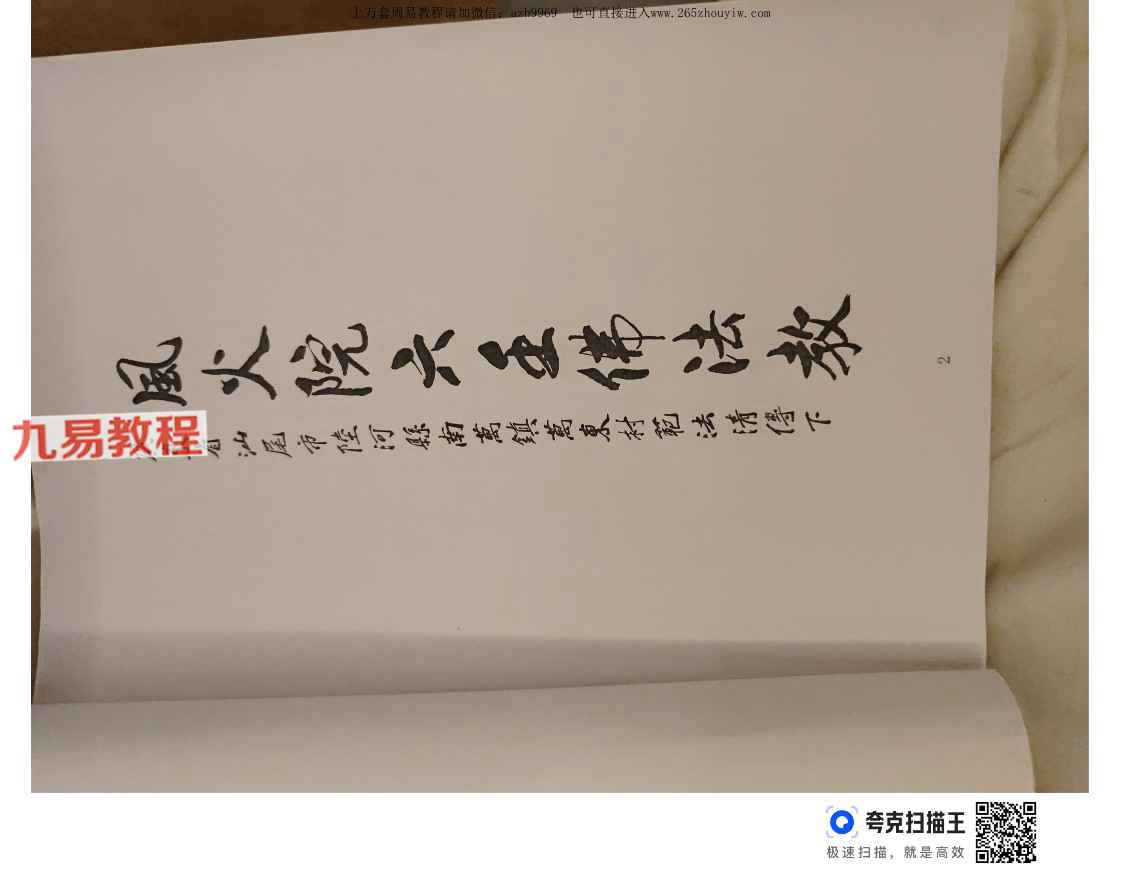 上万套周易教程请加微信：azh9969 也可直接进入www.265zhouyiw.com
風火院六壬佛法教
省汕尾市陸河縣南萬鎮萬東村範法清傳下
2
九易教程
夸克扫描王
极速扫描，就是高效